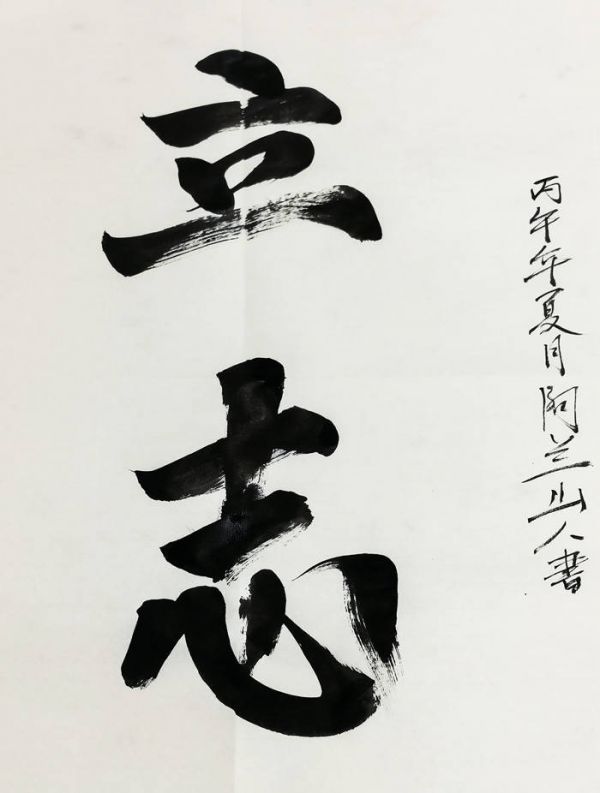 立志
丙午年夏月阿兰山人书